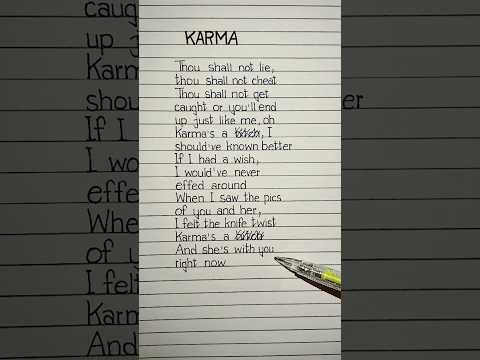 KARMA
Thou shall not lie,
thou shall not cheat
Thou shall not get
caught or you'll end
up just like me, oh
Karma's a , I
should've known better
If I had a wish,
I would've never
effed around
When I saw the pics
of you and her,
I felt the knife twist
Karma's a
And she's with you
right now